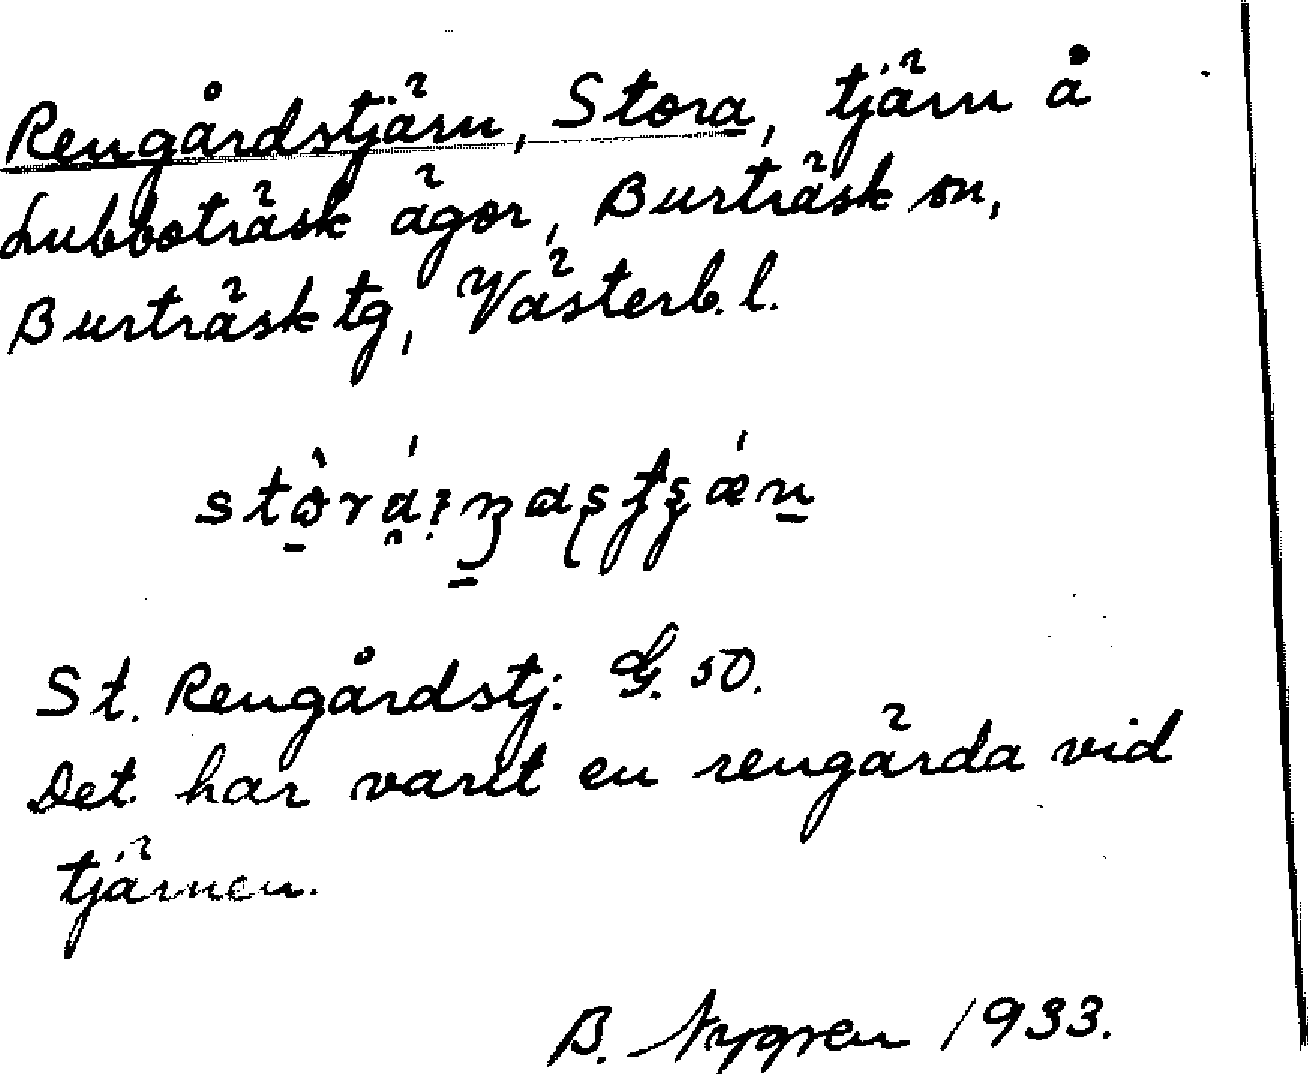 Rengårdstjärn, Stora, tjärn å
Lubboträsk ägor, Burträsk sn,
Burträsk tg, Västerb. l.
St. Rengårdstj: G. 50.
Det har varit en rengärda vid
tjärnen.
B. Nygren 1933.